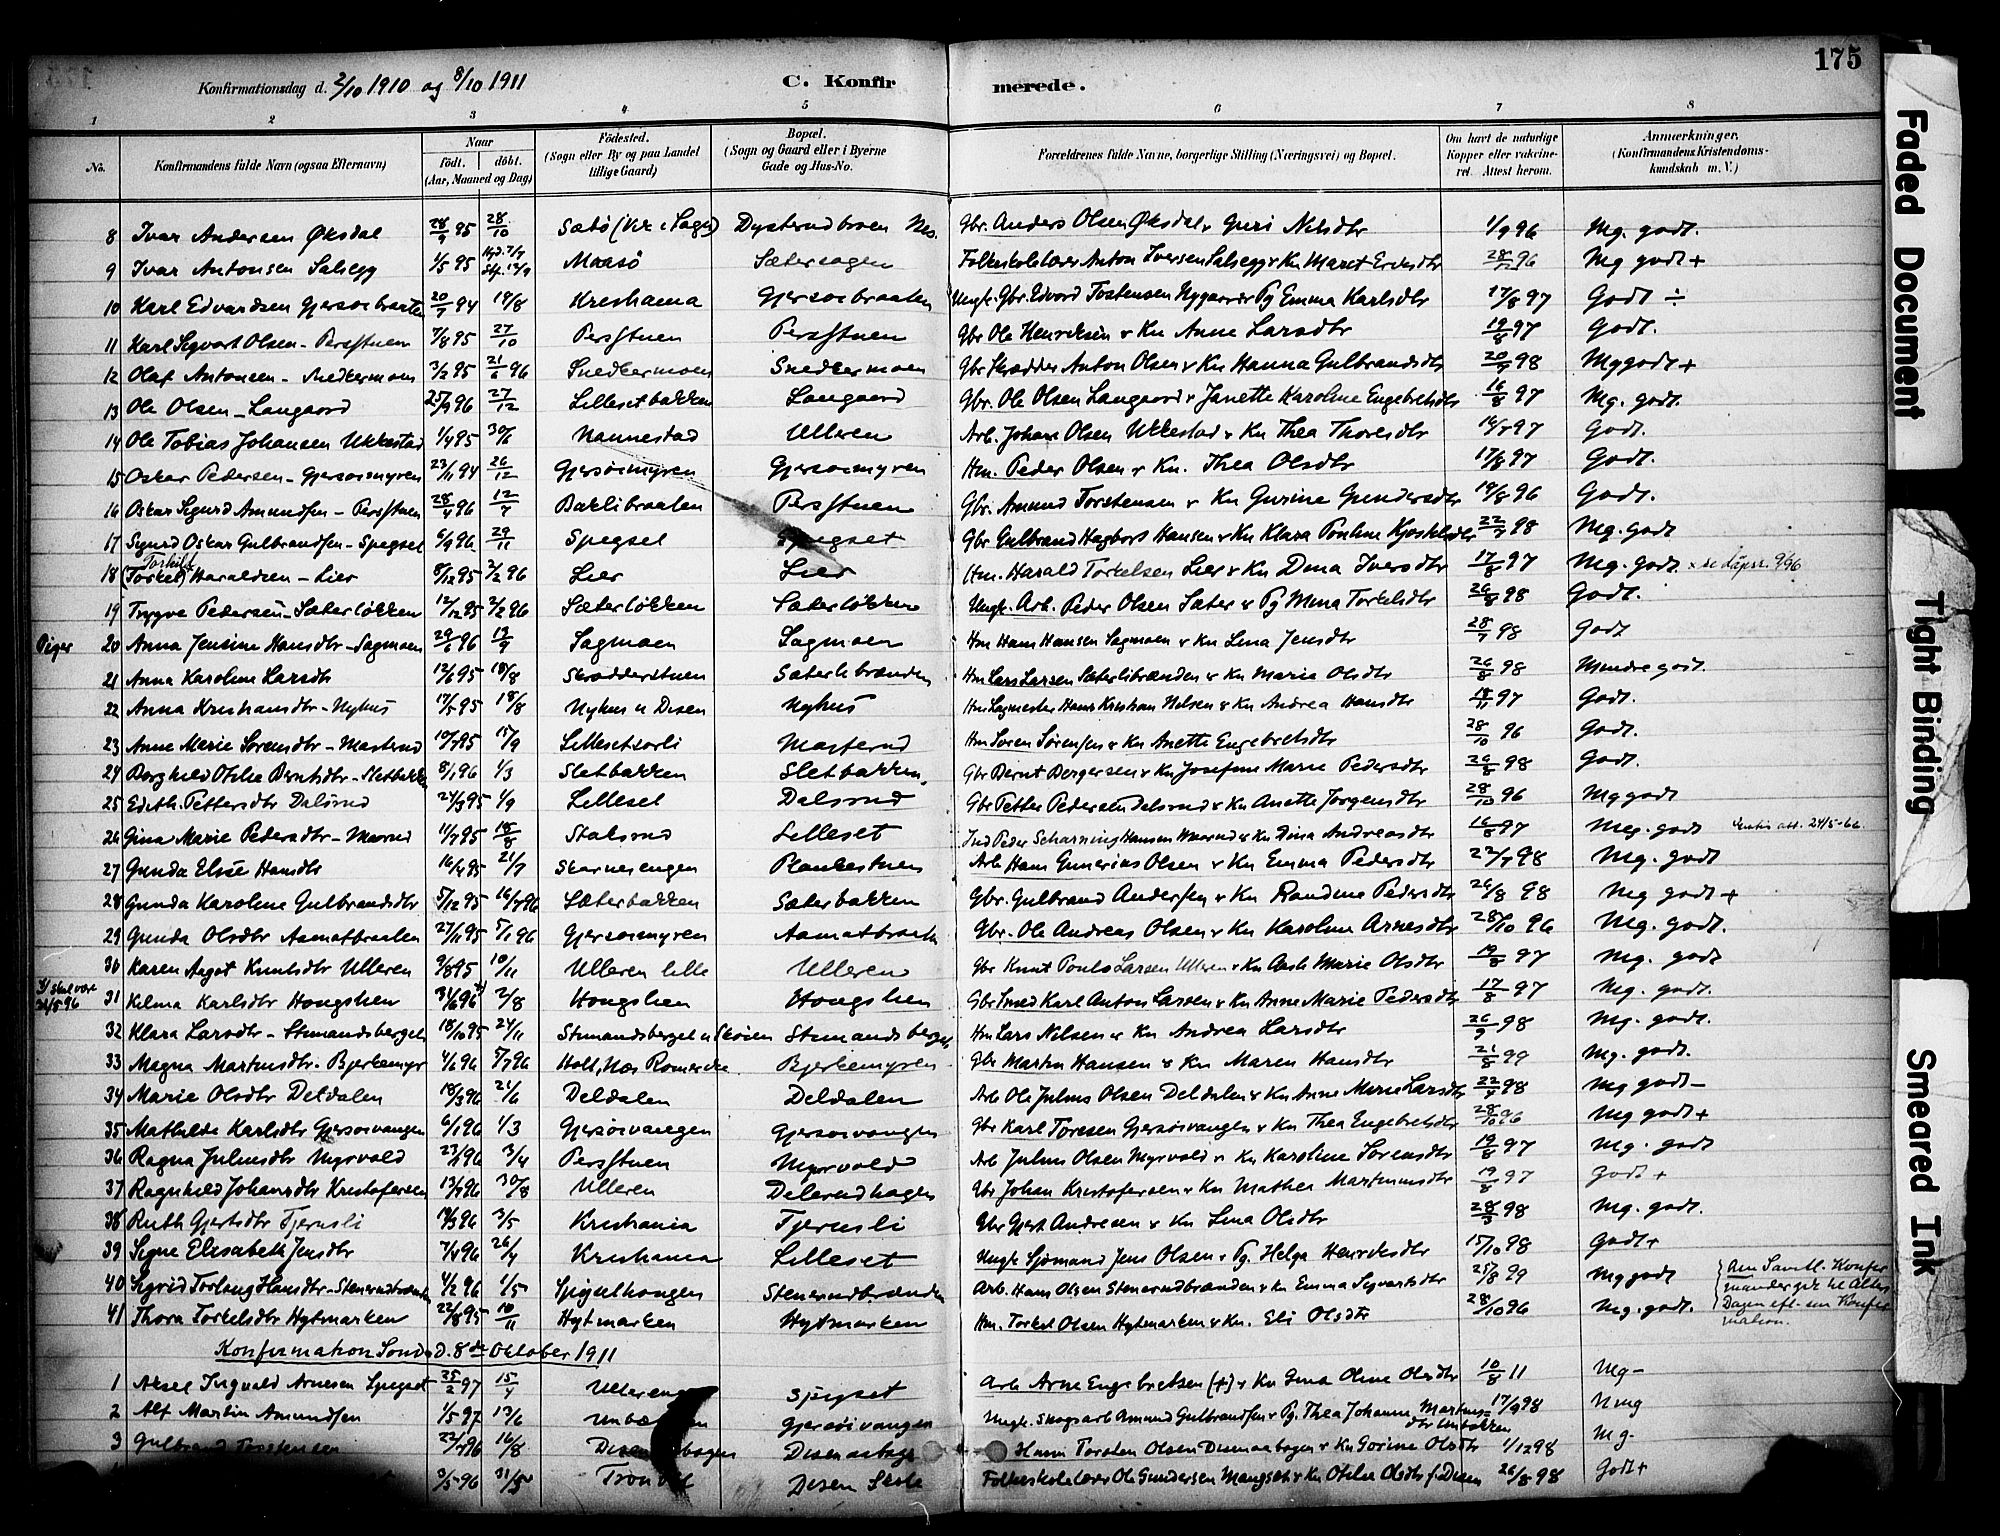 175
Konfirmationsdag d. 2/10 1910 og 8/10 1911 C. Konfirmerede.
1 2 3 4 5 6 7 8
No. Konfirmandens fulde Navn (ogsaa Efternavn) Naar födt. döbt. (Aar, Maaned og Dag) Födested. (Sogn eller By og paa Landet tillige Gaard) Bopæl. (Sogn og Gaard eller i Byerne Gade og Hus-No. Forældrenes fulde Navne, borgerlige Stilling (Næringsvei) og Bopæl. Om havt de naturlige Kopper eller vakcineret. Attest herom. Anmærkninger. (Konfirmandens Kristendomskundskab m. V.)
8 Ivar Andersen Øksdal 28/9 95 28/10 Gbr. Anders Olsen Øksdal v Guri Nilsdtr 1/9 96 Mg. godt.
9 Ivar Antonsen Salsegg 1/5 95 Maasö Sætersagen Folkeskolelærer Anton Iversen Salsegg v Kn Maret 28/12 96 Mg godt +
10 Karl Edvardsen Gjersøebraaten 20/7 94 19/8 Kristiania Gjersoebraaten Ungk. Gbr. Edvard Tostensen Nygaard v Pg Emma Karlsdtr 17/8 97 Godt ÷
11 Karl Sigvart Olsen - Persstuen 7/8 95 27/10 Persstuen Persstuen Gbr Ole Henriksen v Kn Anne Larsdtr 19/8 97 Godt.
12 Olaf Antonsen - Snedkermoen 3/2 95 21/6 96 Snedkermoen Snedkermoen Gbr Skrædder Anton Olsen v Kn Hanna Gulbrandsdtr 20/9 98 Mg godt +
13 Ole Olsen - Langaard 25/9 96 27/12 Lillesetbakken Langaard Gbr. Ole Olsen Langaard v Janette Karoline Engebretsdtr 16/8 97 Mg. godt.
14 Ole Tobias Johansen Ukkestad 1/4 95 30/6 Nannestad Ulleren Arb. Johan Olsen Ukkestad v Kn Thea Thoresdtr 97 Godt.
15 Oskar Pedersen - Gjersøimyren 23/11 94 26/12 Gjersøimyren Gjersoimyren Hm. Peder Olsen v Kn. Thea Olsdtr 17/8 97 Godt.
16 Oskar Sigurd Amundsen - Persstuen 28/4 96 12/7 Baklibraaten Persstuen Gbr. Amund Torstensen v Kn Gurine Gundersdtr 19/8 96 Godt.
17 Sigurd Oskar Gulbrandsen - Spegset 6/9 96 29/11 Spegset Spegset Gbr Gulbrand Hagbart Hansen v Kn Klara Pauline 22/7 98 Mg. godt
18 Torkild (Torkel) Haraldsen - Lier 8/12 95 2/2 96 Lier Lier Hm. Harald Torkelsen Lier v Kn Dina Iversdtr 17/8 97 Mg. godt. x se dåpsr. 9/96
19 Trygve Pedersen - Sæterløkken 12/12 95 2/2 96 Sæterløkken Sæterløkken Ungk. Arb. Peder Olsen Sæter v Pg Mina Torkelsdtr 26/8 98 Godt.
Piger 20 Anna Jensine Hansdtr - Sagmoen 29/6 96 13/9 Sagmoen Sagmoen Hm Hans Hansen Sagmoen v Kn Lina Jensdtr 28/7 98 Godt
21 Anna Karoline Larsdtr 12/6 95 18/8 Skrædderstuen Sæterlibrænden Hm Lars Larsen Sæterlibrænden v Kn Marie Olsdtr 26/8 98 Mindre godt.
22 Anna Kristiansdtr - Nyhus 17/5 95 18/8 Nyhus u Disen Nyhus Hm Sagmester Hans Kristian Nilsen v Kn Andrea Hansdtr 18/11 97 Godt.
23 Anne Marie Sørensdtr - Masterud 10/7 95 15/9 Lillesetsorli Masterud Hm Søren Sørensen v Kn Anette Engebretsdtr 28/10 96 Godt.
24 Borghild Otilie Berntsdtr - Sletbakken 8/1 96 1/3 Sletbakken Sletbakken. Gbr Bernt Bergersen v Kn Josefine Marie Pedersdtr 26/8 98 Godt.
25 Edith. Pettersdtr Dalsrud 24/7 95 1/9 Lilleset Dalsrud Gbr Petter Pedersen Dalsrud v Kn Anette Jørgensdtr 28/10 96 Mg godt
26 Gina Marie Pedersdtr - Maarud 11/7 95 18/8 Stalsrud Lilleset Ind Peder Scharning Hansen Maarud v Kn Dina Andreasdtr 16/8 97 Meg. godt att. 24/5-66.
27 Gunda Elise Hansdtr 16/4 95 21/7 Skarnesengen Plankestuen Arb Hans Gunerius Olsen v Kn Emma Pedersdtr 22/7 98 Mg. godt
28 Gunda Karoline Gulbrandsdtr 5/12 95 16/7 96 Sæterbakken Sæterbakken Gbr. Gulbrand Andersen v Kn Randine Pedersdtr 26/8 98 Mg godt +
29 Gunda Olsdtr Aamotbraaten 27/11 95 5/1 96 Gjersøimyren Aamotbraaten Gbr. Ole Andreas Olsen v Kn Karoline Arnesdtr 28/10 96 Mg. godt.
30 Karen Aagot Knutsdtr Ulleren 9/8 95 10/11 Ulleren lille Ulleren Gbr Knut Pauls Larsen Ulleren v Kn Marie Olsdtr 19/8 97 Mg. godt
x) skal være 31/5 96 31 Kilma Karlsdtr Haugslien 31/6 96 x) 2/8 Haugslien Haugslien Gbr Smed Karl Anton Larsen v Kn Anne Marie Pedersdtr 17/8 97 Mg. godt.
32 Klara Larsdtr - Stemandsberget 18/10 95 24/11 Stemandsberget u Skøien Stemandsberget Hm Lars Nilsen v Kn Andrea Larsdtr 26/9 98 Mg. godt.
33 Magna Martinsdtr - Bjerkemyr 4/6 96 5/7 96 Holt, Nes Romerike. Bjerkemyren Gbr Martin Hansen v Kn Maren Hansdtr 21/8 99 Mg. godt.
34 Marie Olsdtr Deldalen 18/3 96 21/6 Deldalen Deldalen Arb Ole Julius Olsen Deldalen v Kn Anne Marie Larsdtr 22/7 98 Mg godt -
35 Mathilde Karlsdtr Gjersøivangen 6/1 96 1/3 Gjersøivangen Gjersøivangen Gbr Karl Toresen Gjersøivangen v Kn Thea Engebretsdtr 28/10 96 Mg godt +
36 Ragna Juliusdtr Myrvold 23/1 96 3/4 Persstuen Myrvold Arb Julius Olsen Myrvold v Kn Karoline Sørensdtr 19/8 97 Mg. godt
37 Ragnhild Johansdtr Kristofersen 13/7 96 30/8 Ulleren Delerudhagen Gbr Johan Kristofersen v Kn Mathea Martinusdtr 19/8 97 Godt +
38 Ruth Gjertsdtr Tjernsli 3/5 Kristiania Tjernsli Gbr Gjert Andresen v Kn Lina Olsdtr 28/3 98 Mg. godt.
39 Signe Elisabeth Jensdtr 7/4 96 26/4 Kristiania Lilleset Ungk Sjømand Jens Olsen v Pg. Helga Henriksdtr 15/10 98 Godt +
40 Sigrid Torborg Hansdtr - Stenerudbrænden 4/2 96 1/5 Stenerudbrænden Arb. Hans Olsen Stenerudbrænden v Kn Emma Sigvartsdtr 25/8 99 Mg godt
41 Thora Torkelsdtr Hytmarken 22/8 95 10/11 Hytmarken Hytmarken Hm. Torkel Olsen Hytmarken v Kn. Eli Olsdtr 28/10 96 Mg. godt.
Am Samtl. Konfirmander gik til Alters Dagen eft. sin Konfirmation.
Konfirmation Sønd. D. 8de Oktober 1911
1 Aksel Ingvald Arnesen Spegset 25/2 97 15/4 Spegset Arb Arne Engebretsen (+) v Kn Gina Oline Olsdtr 10/8 11 Mg -
2 Alf Martin Amundsen 1/5 97 13/6 Gjersøivangen Ungk. Skogsarb Amund Gulbrandsen v Pg. Thea Johanne Martinusdtr Unbakken 17/9 98 Nmg
3 Gulbrand Torstensen 22/7 96 16/8 Disenaabagen Husm Torsten Olsen Disenaabagen v Kn Gorine Olsdtr 1/12 98 Mg -
3/5 96 31/5 Disen Skole Folkeskolelærer Ole Gundersen Mangset v Kn Otilie Olsdtr f. Disen 26/8 98 Godt
Faded Document
Tight Binding
Smeared Ink